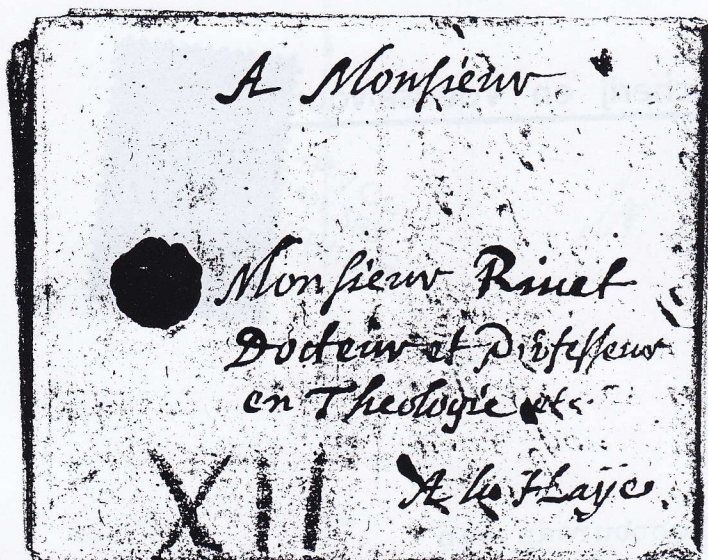 A Monsieur
Monsieur Rivet
Docteur et Professeur
en Theologie etc
A la Haÿe
XII